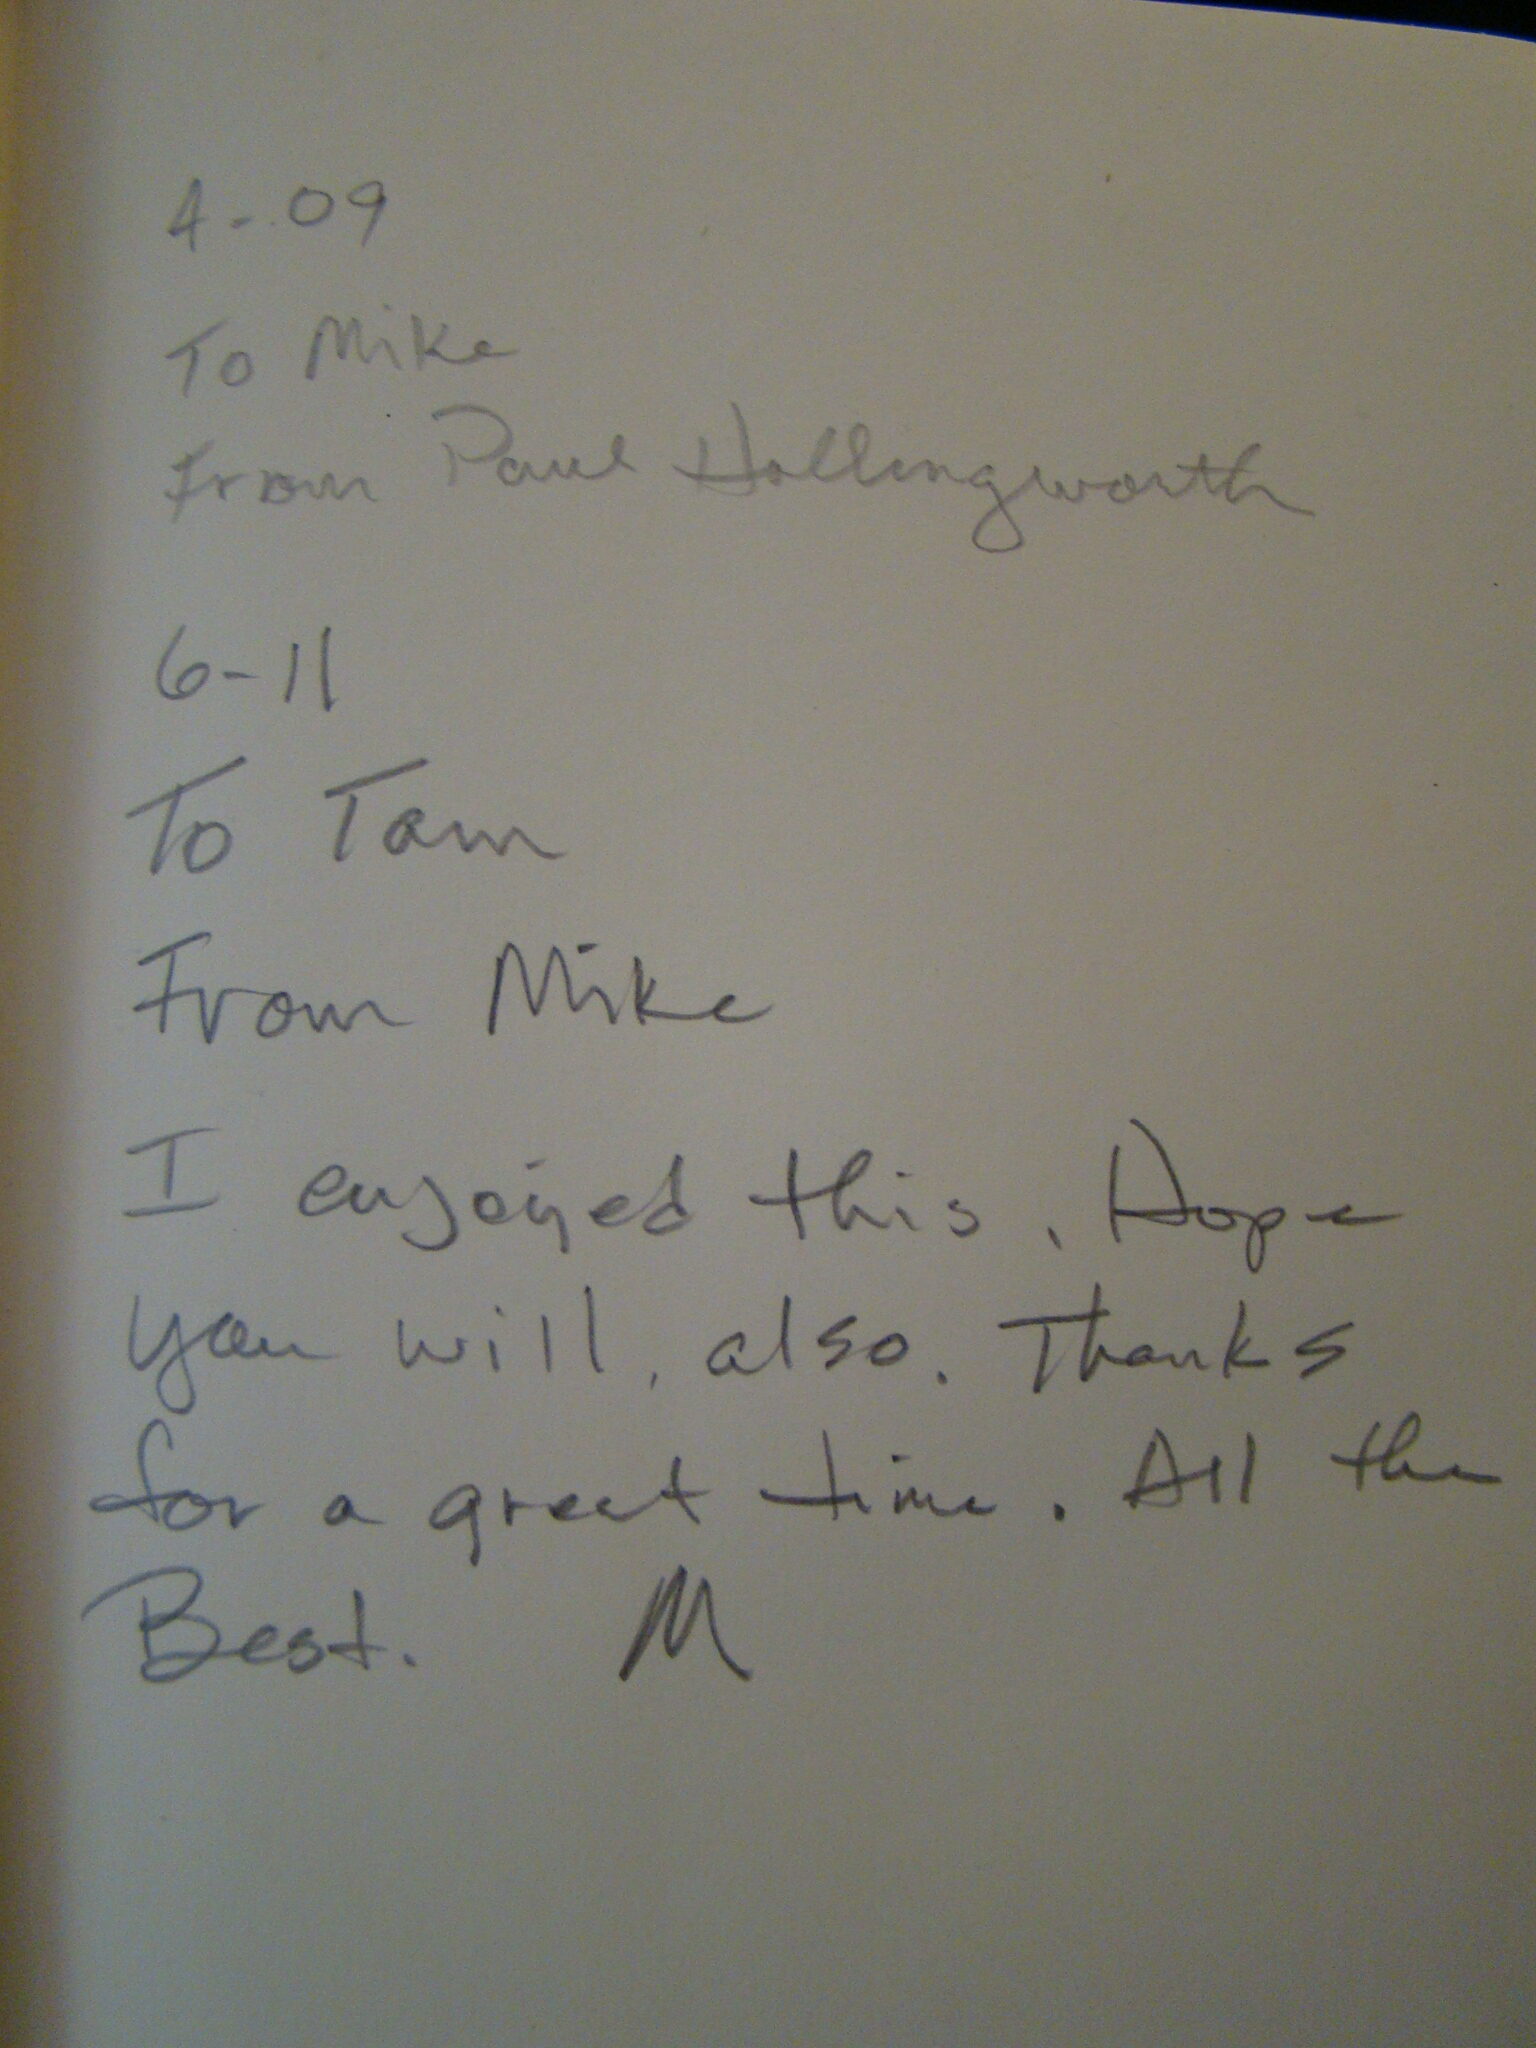 4-09
To Mike
From Paul Hollingworth
6-11
To Tam
From Mike
I enjoyed this. Hope
you will, also. Thanks
for a great time. All the
Best. M